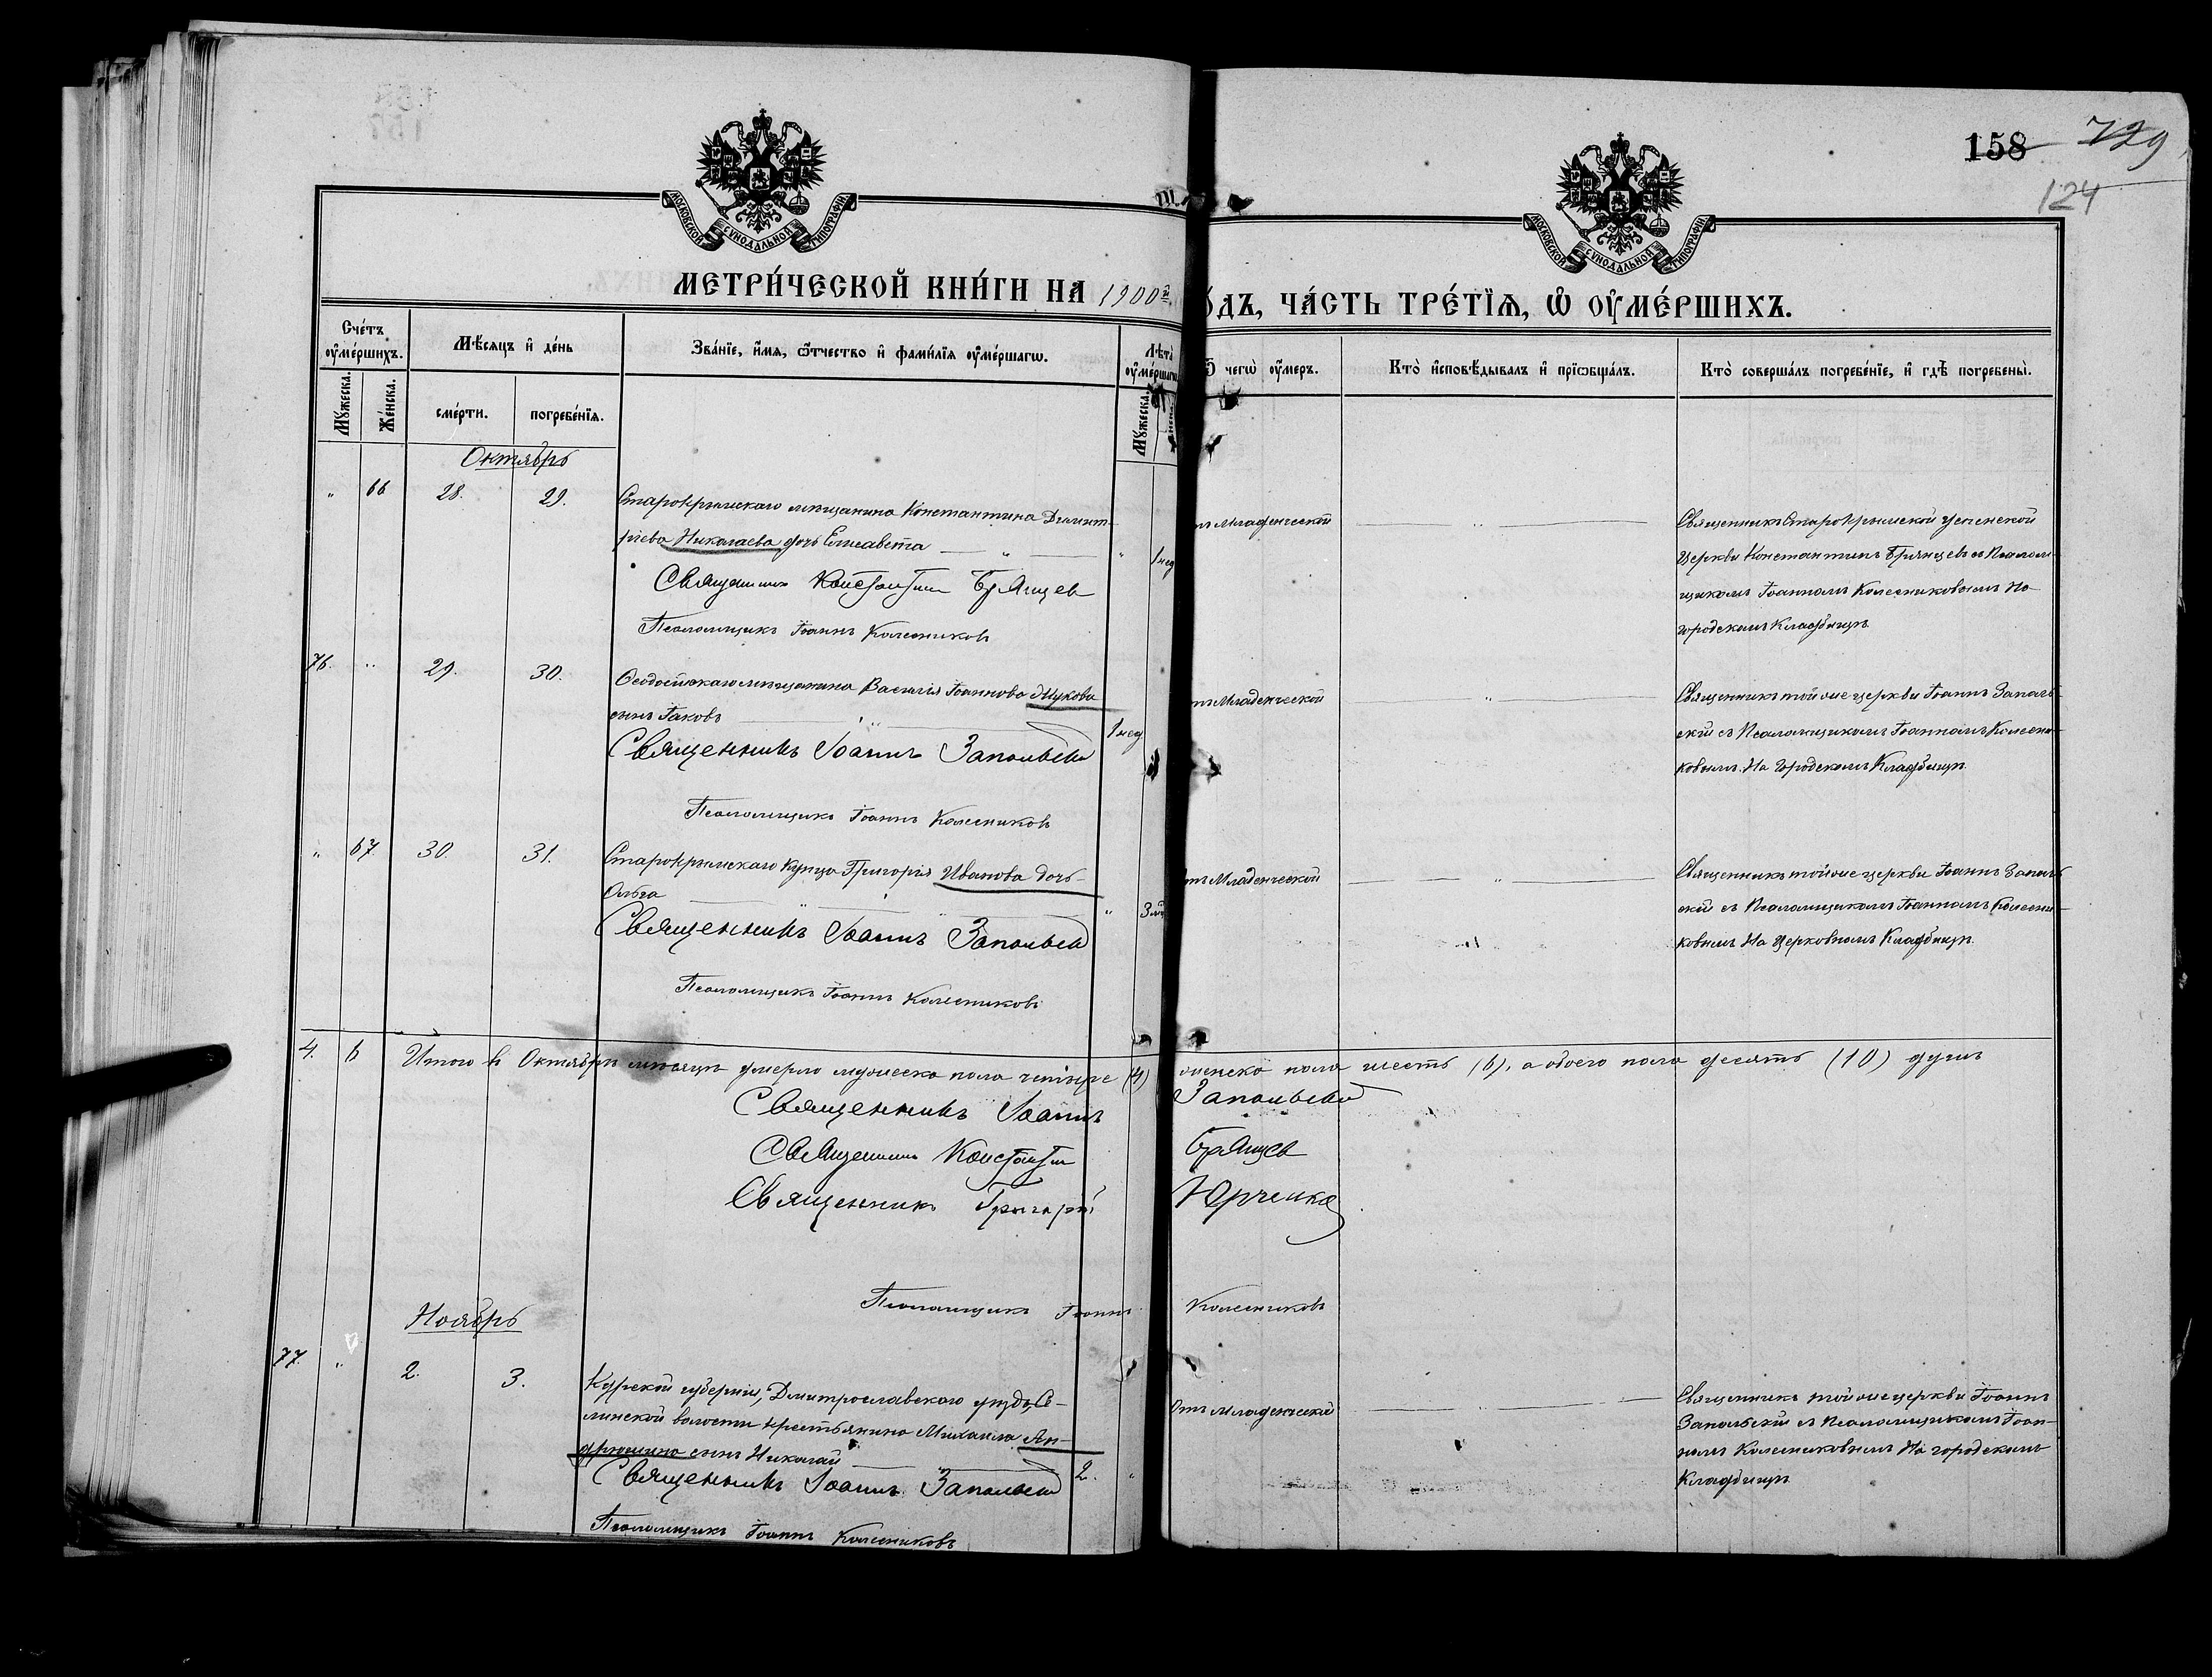 158 729
124
МОСКОВСКОЙ СѴНОДАЛЬНОЙ ТИПОГРАФІИ
МОСКОВСКОЙ СѴНОДАЛЬНОЙ ТИПОГРАФІИ
МЕТРИ́ЧЕСКОЙ КНИ́ГИ НА 1900й
О́ДЪ, ЧА́СТЬ ТРЕ́ТІѦ, Ѽ ОУ҆МЕ́РШИХЪ.
Сче́тъ оу҆ме́ршихъ.
Мѣ́сѧцъ и҆ де́нь
Зва́нїе, и҆́мѧ, ѻ҆́тчество и҆ фами́лїѧ оу҆ме́ршагѡ.
Лѣта̀ оу҆ме́ршагѡ
чегѡ̀ оу҆́меръ.
Кто̀ и҆сповѣ́дывалъ и҆ прїѡбща́лъ.
Кто̀ соверша́лъ погребе́нїе, и҆ гдѣ̀ погребены̀.
Мꙋ́жеска.
Же́нска.
сме́рти.
погребе́нїѧ.
Мꙋ́жеска.
Октябрь
" 66 28. 29. Старокрымскаго мѣщанина Константина Димит-
ріева Николаева дочь Елисавета — " — " 1 нед
Священникъ Константинъ Брянцев
Псаломщикъ Іоаннъ Колесниковъ
Младенческой
Священникъ Старокрымской Успенской
Церкви Константинъ Брянцевъ съ Псалом-
щикомъ Іоанномъ Колесниковымъ На
городскомъ Кладбищѣ.
76. " 29. 30. Ѳеодосійскаго мѣщанина Василія Іоаннова
сынъ Іаковъ 1 нед
Священникъ Іоаннъ Запольскій
Псаломщикъ Іоаннъ Колесниковъ
Младенческой
Священникъ той же церкви Іоаннъ Заполь-
скій съ Псаломщикомъ Іоанномъ Колесни-
ковымъ. На Городскомъ Кладбищѣ.
" 67. 30. 31. Старокрымскаго Купца Григорія Иванова дочь
Ольга " 3
Священникъ Іоаннъ Запольскій
Псаломщикъ Іоаннъ Колесниковъ
отъ Младенческой
Священникъ той же церкви Іоаннъ Заполь-
скій съ Псаломщикомъ Іоанномъ Колесни-
ковымъ На Церковномъ Кладбищѣ.
4. 6 Итого въ Октябрѣ мѣсяцѣ умерло мужеска пола четыре (4) женска пола шесть (6), а обоего пола десять (10) душъ
Священникъ Іоаннъ Запольскій
Священникъ Константинъ Брянцев
Священникъ Григорій Юрченко
Псаломщикъ Іоаннъ Колесниковъ
Ноябрь
77. " 2. 3. Курской губерніи, Дмитрославскаго уѣзда, Се-
линской волости крестьянина Михаила Ан-
дрюшина сынъ Николай 2. "
Священникъ Іоаннъ Запольскій
Псаломщикъ Іоаннъ Колесниковъ
Отъ Младенческой
Священникъ той же церкви Іоаннъ
Запольскій съ Псаломщикомъ Іоан-
номъ Колесниковымъ На городскомъ
Кладбищѣ.